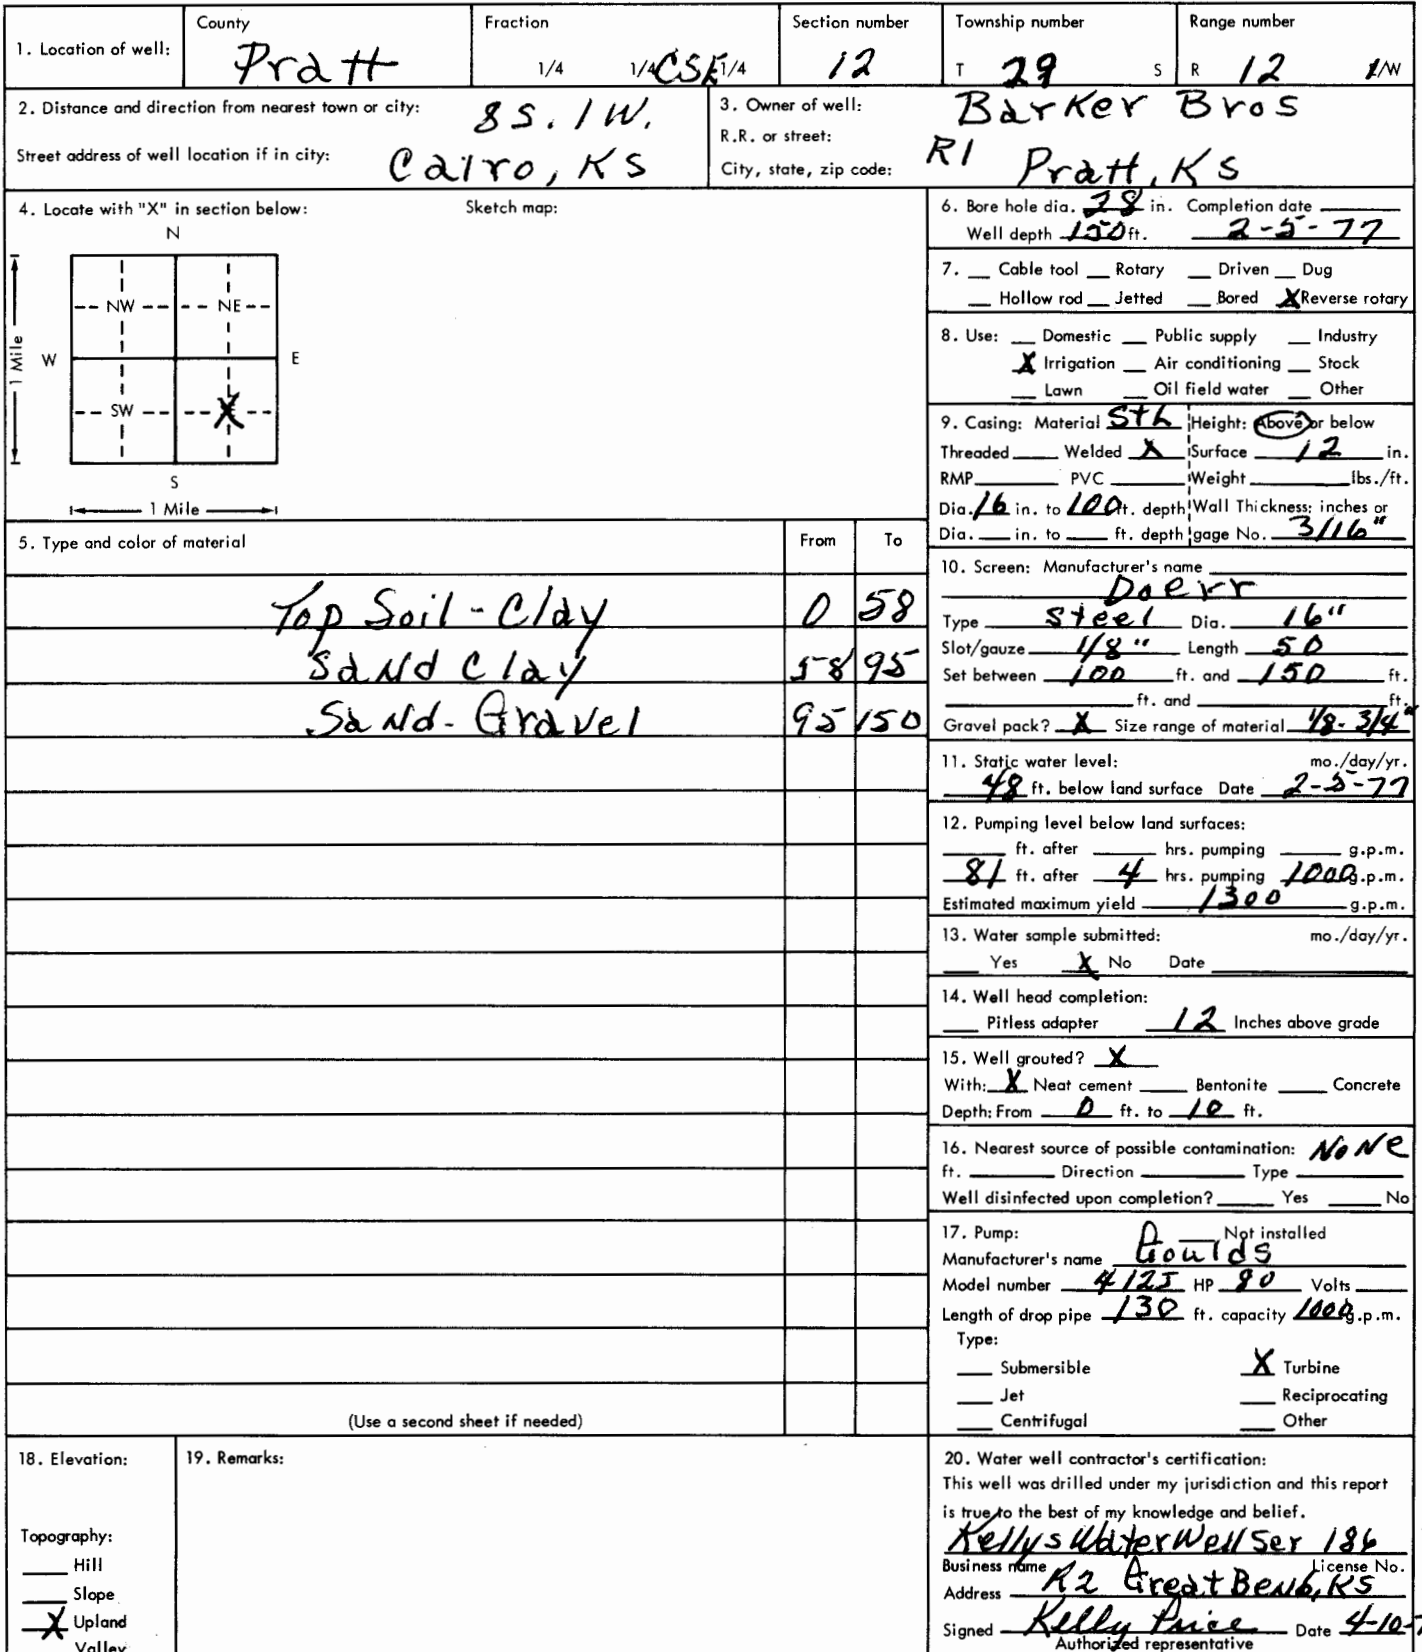 County Fraction Section number Township number Range number
1. Location of well: Pratt 1/4 1/4 CSE 1/4 12 T 29 S R 12 E/W
2. Distance and direction from nearest town or city: 8 S. 1 W.
Street address of well location if in city: Cairo, KS
3. Owner of well: Barker Bros
R.R. or street: R1
City, state, zip code: Pratt, KS
4. Locate with "X" in section below: Sketch map:
N
NW NE
W E
1 Mile
SW X
S
1 Mile
5. Type and color of material From To
Top Soil - Clay 0 58
Sand Clay 58 95
Sand - Gravel 95 150
(Use a second sheet if needed)
6. Bore hole dia. 28 in. Completion date
Well depth 150 ft. 2-5-77
7. __ Cable tool __ Rotary __ Driven __ Dug
__ Hollow rod __ Jetted __ Bored X Reverse rotary
8. Use: __ Domestic __ Public supply __ Industry
X Irrigation __ Air conditioning __ Stock
__ Lawn __ Oil field water __ Other
9. Casing: Material StL Height: Above or below
Threaded ___ Welded X Surface 12 in.
RMP ___ PVC ___ Weight ___ lbs./ft.
Dia. 16 in. to 100 ft. depth Wall Thickness: inches or
Dia. ___ in. to ___ ft. depth gage No. 3/16"
10. Screen: Manufacturer's name
Doerr
Type Steel Dia. 16"
Slot/gauze 1/8" Length 50
Set between 100 ft. and 150 ft.
___ ft. and ___ ft.
Gravel pack? X Size range of material 1/8-3/4"
11. Static water level: mo./day/yr.
48 ft. below land surface Date 2-5-77
12. Pumping level below land surfaces:
___ ft. after ___ hrs. pumping ___ g.p.m.
81 ft. after 4 hrs. pumping 1000 g.p.m.
Estimated maximum yield 1300 g.p.m.
13. Water sample submitted: mo./day/yr.
__ Yes X No Date
14. Well head completion:
__ Pitless adapter 12 Inches above grade
15. Well grouted? X
With: X Neat cement ___ Bentonite ___ Concrete
Depth: From 0 ft. to 10 ft.
16. Nearest source of possible contamination: None
ft. ___ Direction ___ Type ___
Well disinfected upon completion? ___ Yes ___ No
17. Pump: __ Not installed
Manufacturer's name Goulds
Model number 4125 HP 80 Volts
Length of drop pipe 130 ft. capacity 1000 g.p.m.
Type:
__ Submersible X Turbine
__ Jet __ Reciprocating
__ Centrifugal __ Other
18. Elevation:
Topography:
__ Hill
__ Slope
X Upland
Valley
19. Remarks:
20. Water well contractor's certification:
This well was drilled under my jurisdiction and this report
is true to the best of my knowledge and belief.
Kellys Water Well Ser 186
Business name License No.
Address R2 Great Bend, KS
Signed Kelly Price Date 4-10-
Authorized representative